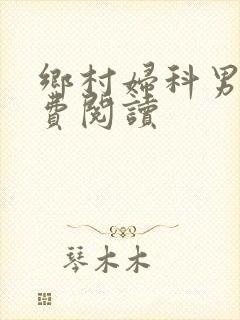 鄉村婦科男
費閱讀
琴木木